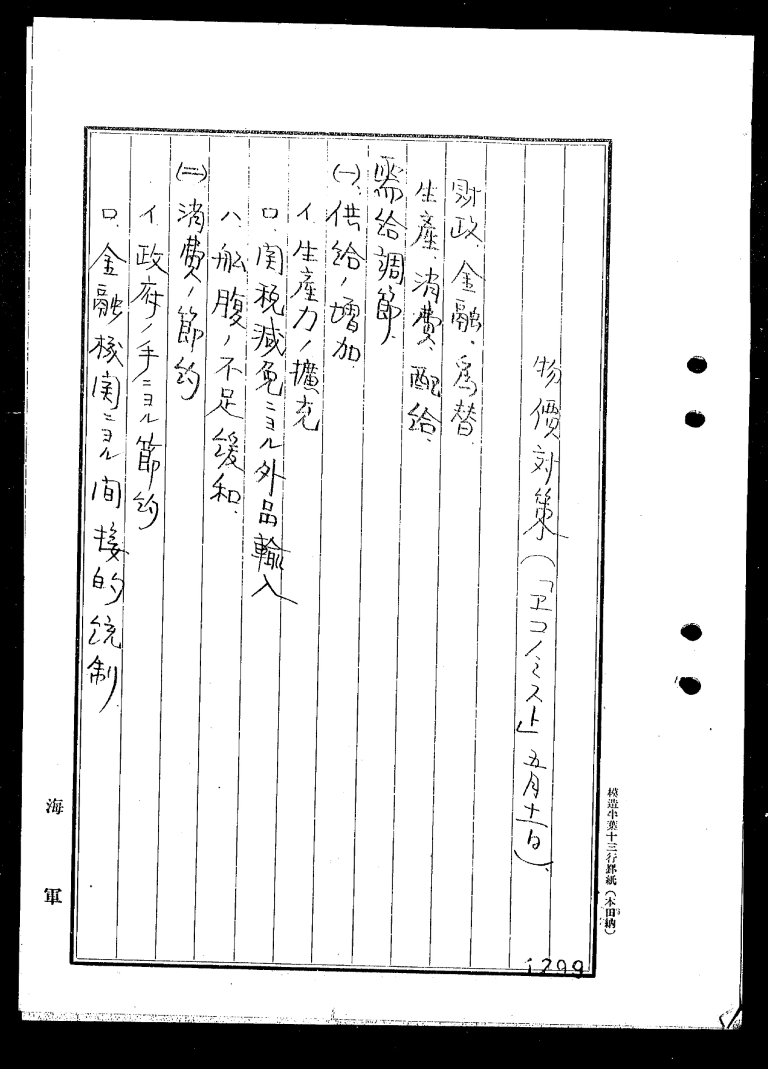 物價対策(「エコノミスト」五月十一日)、
財政、金融、為替
生產、消費、配給、
需給調節、
(一)、供給ノ増加
イ、生産力ノ擴充
ロ、関税減免ニヨル外品輸入
ハ、船腹ノ不足緩和、
(二)、消費ノ節約
イ、政府ノ手ニヨル節約
ロ、金融機関ニヨル間接的統制
海軍
模造半葉十三行罫紙(本田納)
1299